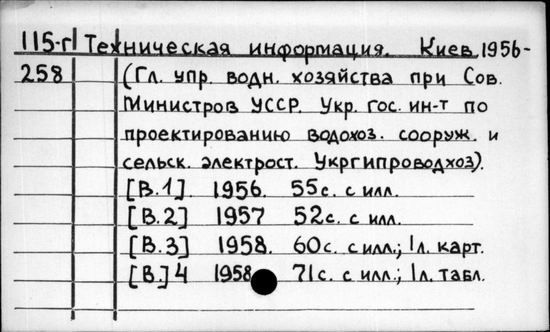 115-г Техническая информация. Киев, 1956-
258 (Гл. упр. водн. хозяйства при Сов.
Министров УССР. Укр. гос. ин-т по
проектированию водохоз. сооруж. и
сельск. электрост. Укргипроводхоз).
[В.1] 1956. 55с. с илл.
[В.2] 1957 52с. с илл.
[В.3] 1958. 60с. с илл.; 1л. карт.
[В.]4 1958 71с. с илл.; 1л. табл.